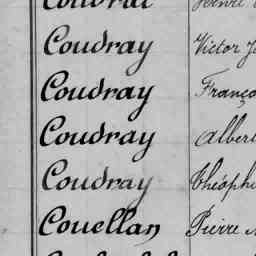 Coudray Victor J
Coudray Franço
Coudray Albert
Coudray Théophi
Couellan Pierre